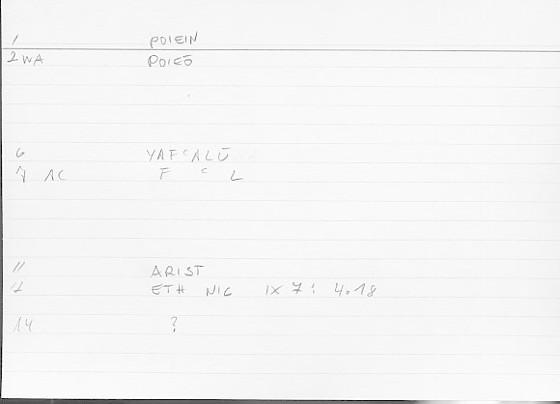 1 POIEIN
2 WA POIEŌ
6 YAFʿALŪ
7 AC F ʿ L
11 ARIST
12 ETH NIC IX 7: 4.18
14 ?